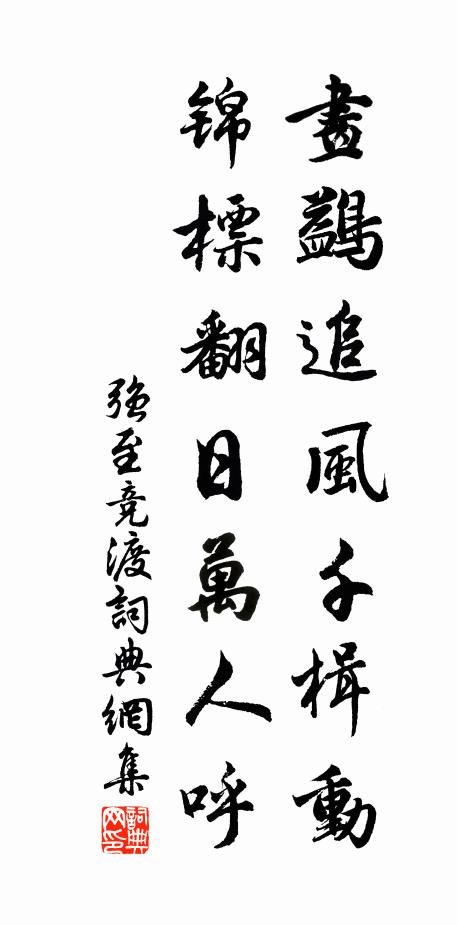 畫鷁追風千楫動
錦標翻日萬人呼
強至竞渡詞典網集
詞典网印